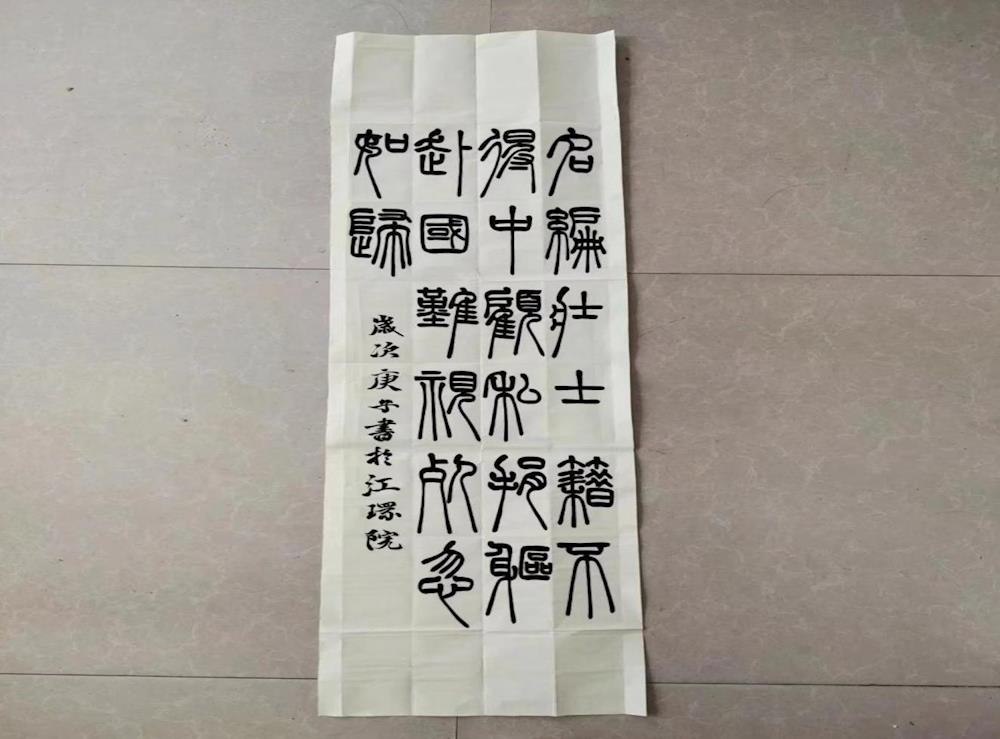 名編壯士籍不
得中顧私捐軀
赴國難視死忽
如歸
歲次庚子書於江環院